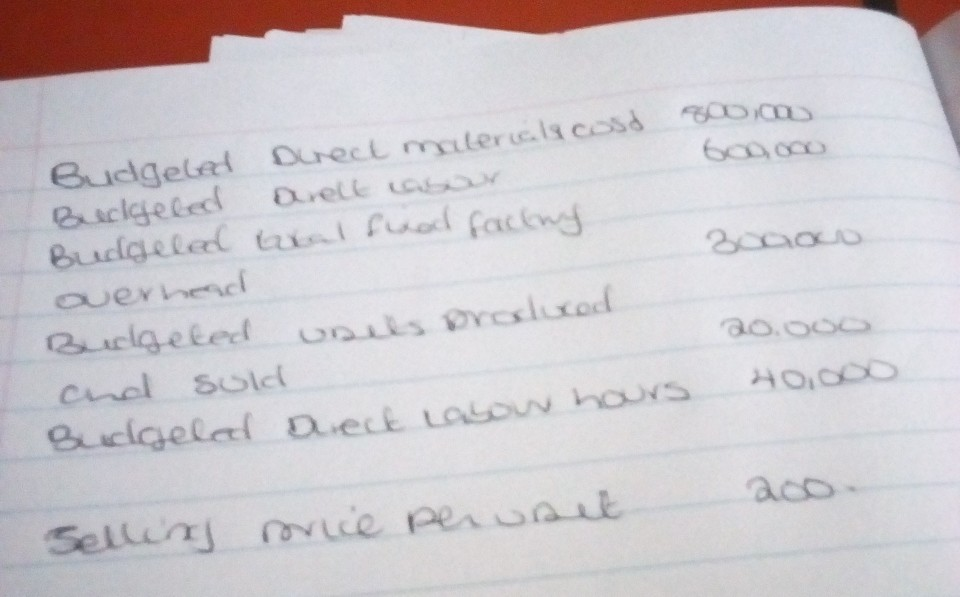 Budgeted Direct materials cost 800,000
Budgeted Direct Labour 600,000
Budgeted total fixed factory
overhead 300,000
Budgeted units produced
and sold 20.000
Budgeted Direct Labour hours 40,000
Selling price per unit 200.